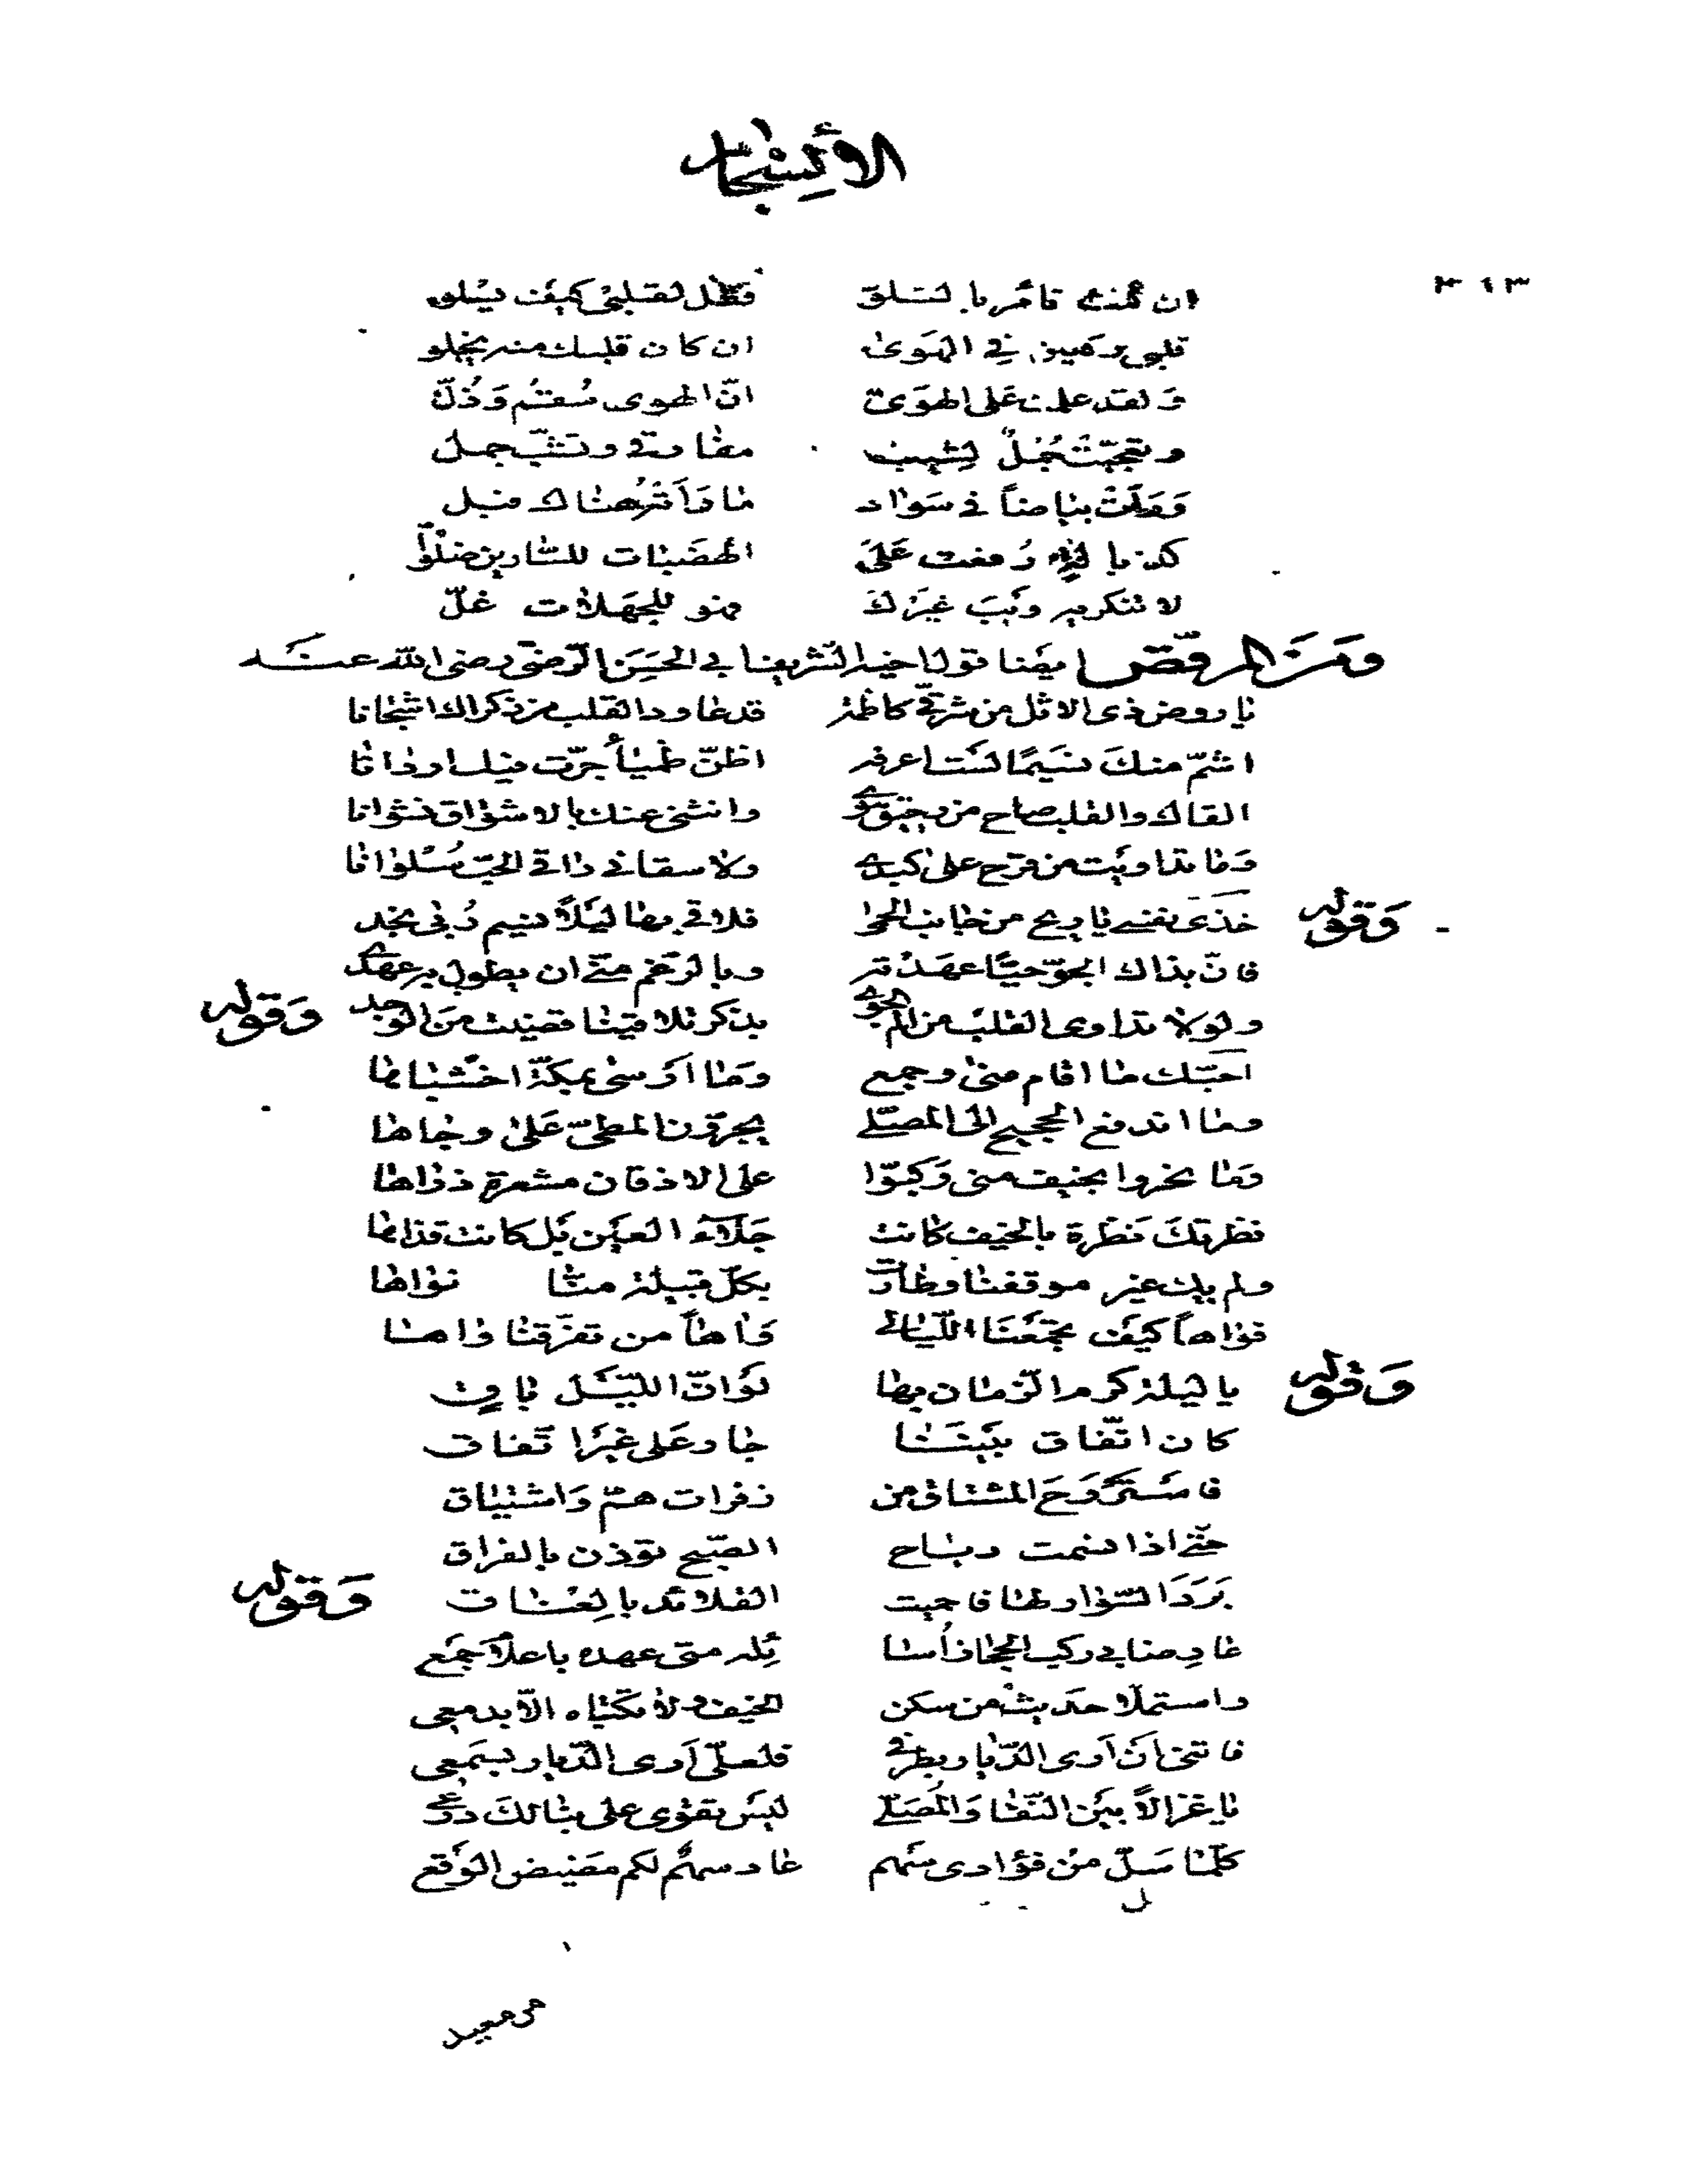 الأشجار
٣١٣
ان كنت تأمر بالتسلق فقل لقلبي كيف يسلو
قلبي رهين في الهوى ان كان قلبك منه يخلو
ولقد علمت على الهوى انّ الهوى سقم وذلّ
وتعجبت جمل لشيب مفارقي وتشيب جمل
ورأت بياضاً في سواد ما رأته هناك قبل
رفعت على الهضبات للسارين ضلّوا
لا تنكريه ويب غيرك فهو للجهلات غلّ
ومن المرقص ايضا قول اخيه الشريف ابي الحسن الرضى رضى الله عنه
يا روض ذى الاثل من شرقي كاظمة قد عاود القلب من ذكراك اشجانا
اشمّ منك نسيمًا لست اعرفه اظنّ ظمياء جرّت فيك اردانا
القاك والقلب صاح من وانثنى عنك بالاشواق نشوانا
وما تداويت من قرح على كبدي ولا سقاني راقي الحب سلوانا
وقوله
خذى نفسي يا ريح من جانب الحمى فلاقي بها ليلاً نسيم ربى نجد
فانّ بذاك الجوّ حيًّا عهدته وبالرغم منّي ان يطول به عهدي
ولولا تداوى القلب من الم الجوى بذكر تلاقينا قضيت من الوجد
وقوله
احبّك ما اقام منى وجمع وما ارسى بمكّة اخشباها
وما اندفع الحجيج الى المصلّى يجرّون المطىّ على وجاها
وما نحروا بخيف منى وكبّوا على الاذقان مشعرة ذراها
نظرتك نظرة بالخيف كانت جلاء العين بل كانت قذاها
ولم يك غير موقفنا وطارت بكلّ قبيلة منّا نواها
فواهاً كيف تجمعنا الليالي وآهاً من تفرّقنا وآها
وقوله
يا ليلة كرم الزمان بها لو انّ الليل باق
كان اتّفاق بيننا جار على غير اتّفاق
فاستروح المشتاق من زفرات همّ واشتياق
حتّى اذا نسمت رياح الصّبح توذن بالفراق
برد السّوار لها فاحميت القلائد بالعناق
وقوله
عارضا بي ركب الحجاز أسا ئله متى عهده باعلام جمع
واستملّا حديث من سكن الخيف ولا تكتباه الّا بدمعي
فاتني ان ارى الدّيار بطرفي فلعلّي ارى الدّيار بسمعي
يا غزالاً بين النّقا والمصلّى ليس يقوى على نبالك درعي
كلّما سلّ من فؤادى سهم عاد سهم لكم مضيض الوقع